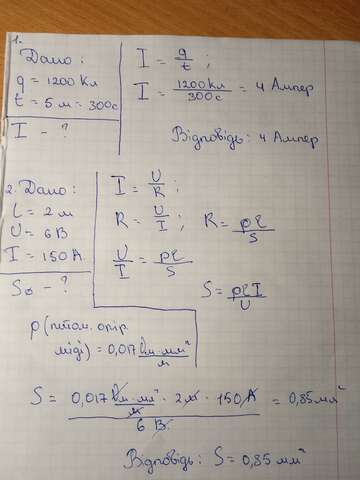 1.
Дано:
q = 1200 Кл
t = 5 м = 300с
I - ?
I = q/t ;
I = 1200 Кл / 300 с = 4 Ампер
Відповідь: 4 Ампер
2. Дано:
l = 2 м
U = 6 В
I = 150 А
S₀ - ?
I = U/R ;
R = U/I ; R = ρl/S
U/I = ρl/S
S = ρlI/U
ρ (питом. опір
міді) = 0,017 Ом·мм²/м
S = 0,017 Ом·мм²/м · 2 м · 150 А / 6 В = 0,85 мм²
Відповідь: S = 0,85 мм²